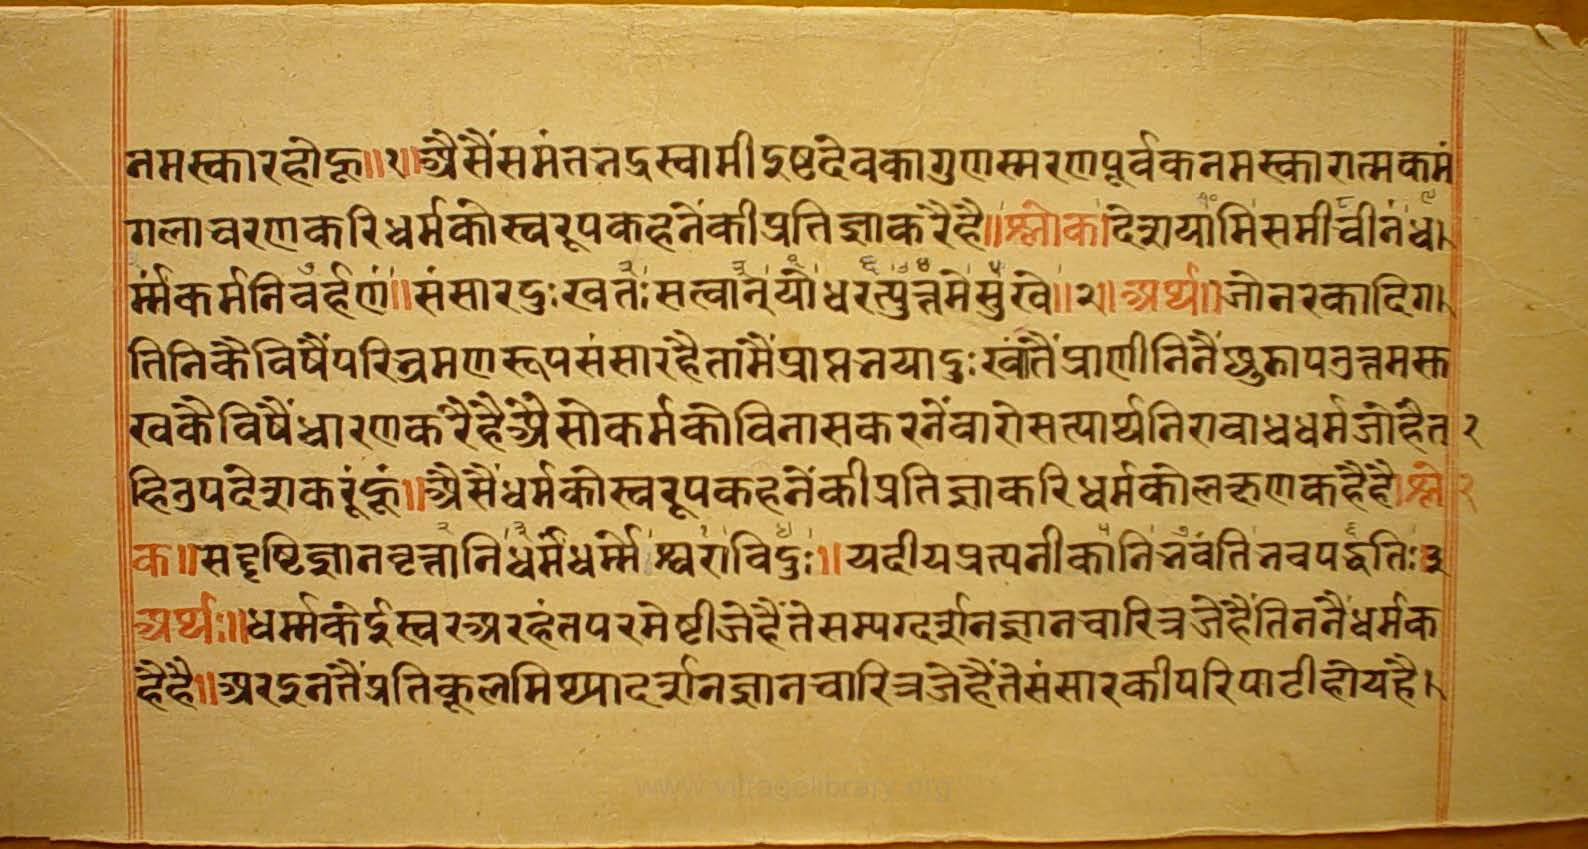 नमस्कारहोहू॥१॥अैसैंसमंतनद्रस्वामीइष्टदेवकागुणस्मरणपूर्वकनमस्कारात्मकमं
गलाचरणकरिधर्मकोस्वरूपकहनेंकीप्रतिज्ञाकरैहै॥श्लोक॥देशयामिसमीचीनंध।
र्म्मंकर्मनिवर्हणं॥संसारदुःखतःसत्वान्योधरत्युत्तमेसुखे॥२॥अर्थ॥जोनरकादिग।
तिनिकैविषैंपरिभ्रमणरूपसंसारहैतामैंप्राप्तनयादुःखतैंप्राणीनिनैंछुडापउत्तमसु
खकैविषैंधारणकरैहैअैसोकर्मकोविनासकरनेंवारोसत्यार्थनिरावाधधर्मजोहैत २
हिउपदेशकरूंहूं॥अैसैंधर्मकोस्वरूपकहनेंकीप्रतिज्ञाकरिधर्मकोलक्षणकहैहै॥श्लो
क॥सद्दृष्टिज्ञानवृत्तानिधर्मंधर्म्मेश्वराविदुः॥यदीयप्रत्यनीकानिनवंतिनवपद्धतिः३
अर्थः॥धर्म्मकेईस्वरअरहंतपरमेष्टीजेहैंतेसम्यग्दर्शनज्ञानचारित्रजेहैंतिननैंधर्मक
हैहै॥अरइनतैंप्रतिकूलमिथ्यादर्शनज्ञानचारित्रजेहैंतेसंसारकीपरिपाटीहोयहै।
www.vitragelibrary.org